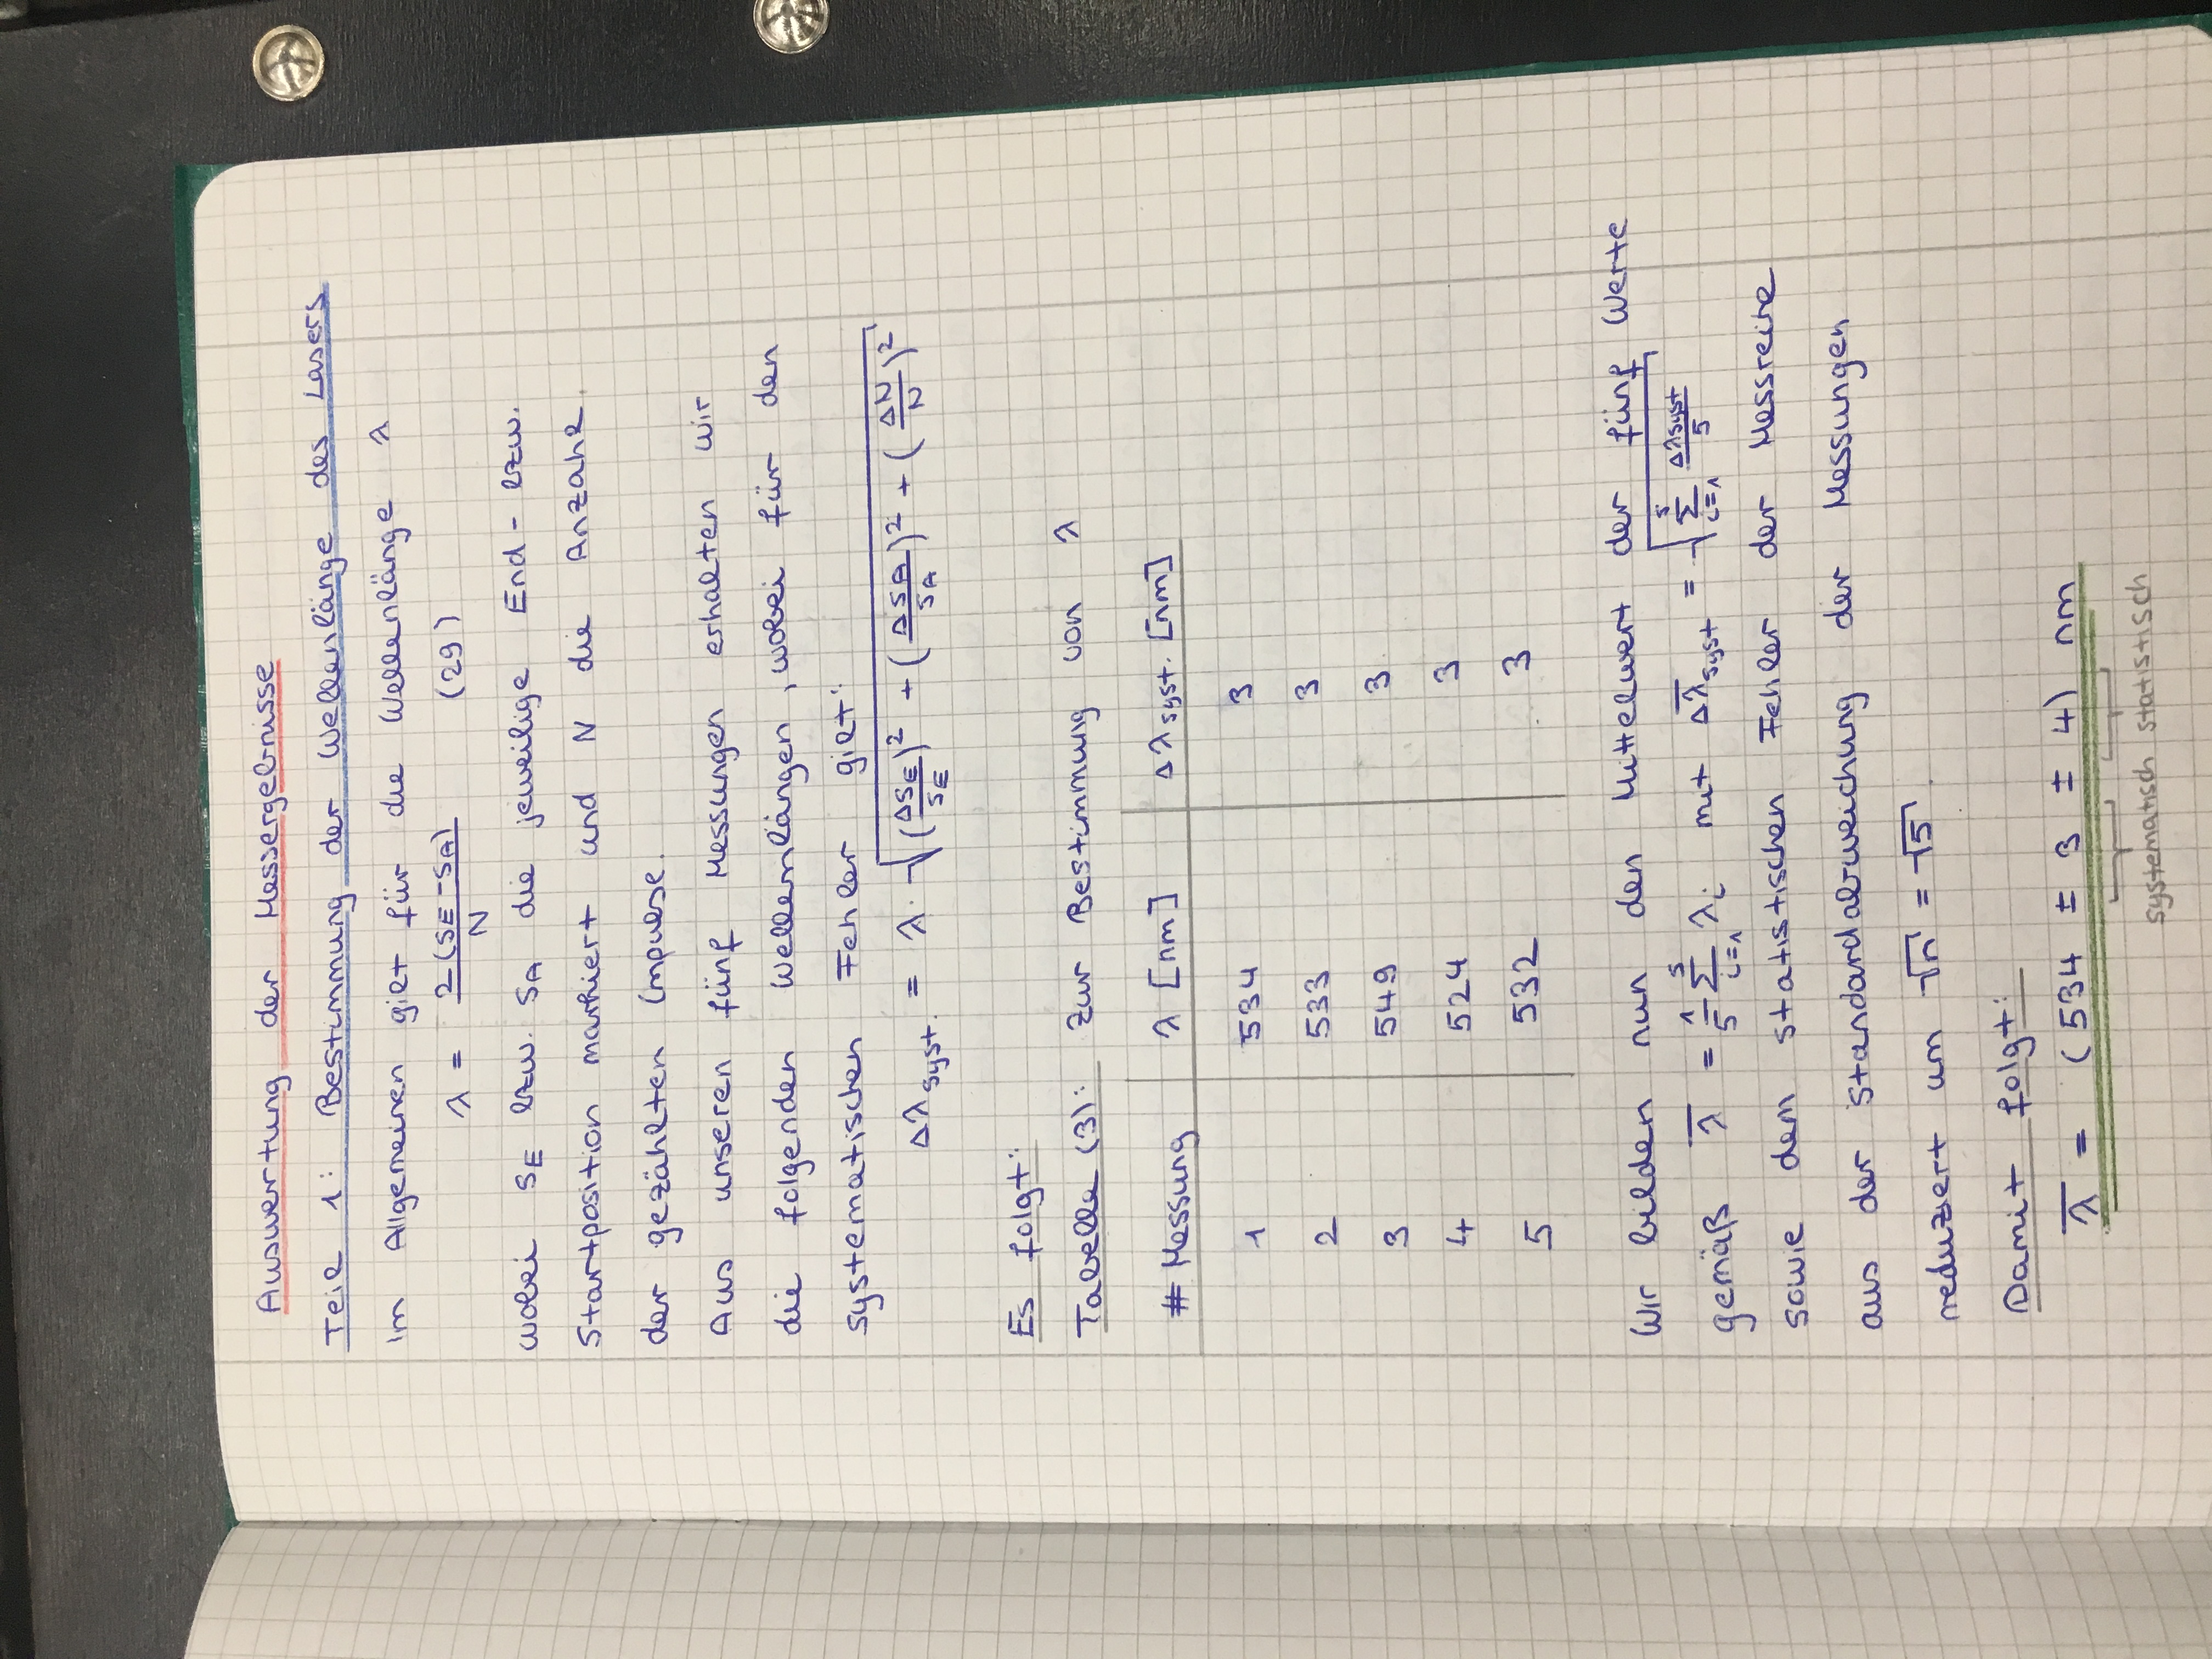 Auswertung der Messergebnisse
Teil 1: Bestimmung der Wellenlänge des Lasers
Im Allgemeinen gilt für die Wellenlänge λ
λ = 2(S_E - S_A) / N (29)
wobei S_E bzw. S_A die jeweilige End- bzw.
Startposition markiert und N die Anzahl
der gezählten Impulse.
Aus unseren fünf Messungen erhalten wir
die folgenden Wellenlängen, wobei für den
systematischen Fehler gilt:
Δλ_syst. = λ · √((ΔS_E/S_E)² + (ΔS_A/S_A)² + (ΔN/N)²)
Es folgt:
Tabelle (3): Zur Bestimmung von λ
# Messung λ [nm] Δλ_syst. [nm]
1 534 3
2 533 3
3 549 3
4 524 3
5 532 3
Wir bilden nun den Mittelwert der fünf Werte
gemäß λ̅ = 1/5 Σ_{i=1}^{5} λ_i mit Δλ̅_syst = √(Σ_{i=1}^{5} Δλ_syst/5)
sowie dem statistischen Fehler der Messreihe
aus der Standardabweichung der Messungen
reduziert um √n = √5.
Damit folgt:
λ̅ = (534 ± 3 ± 4) nm
systematisch statistisch